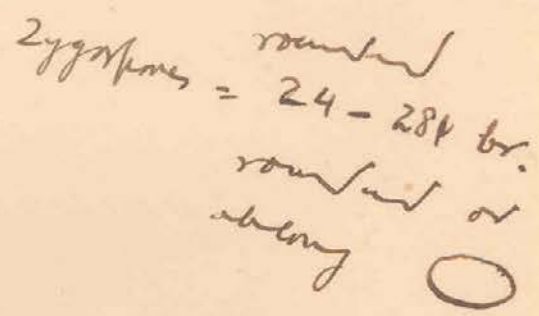 rounded
Zygospores = 24 - 28µ br.
rounded or
oblong